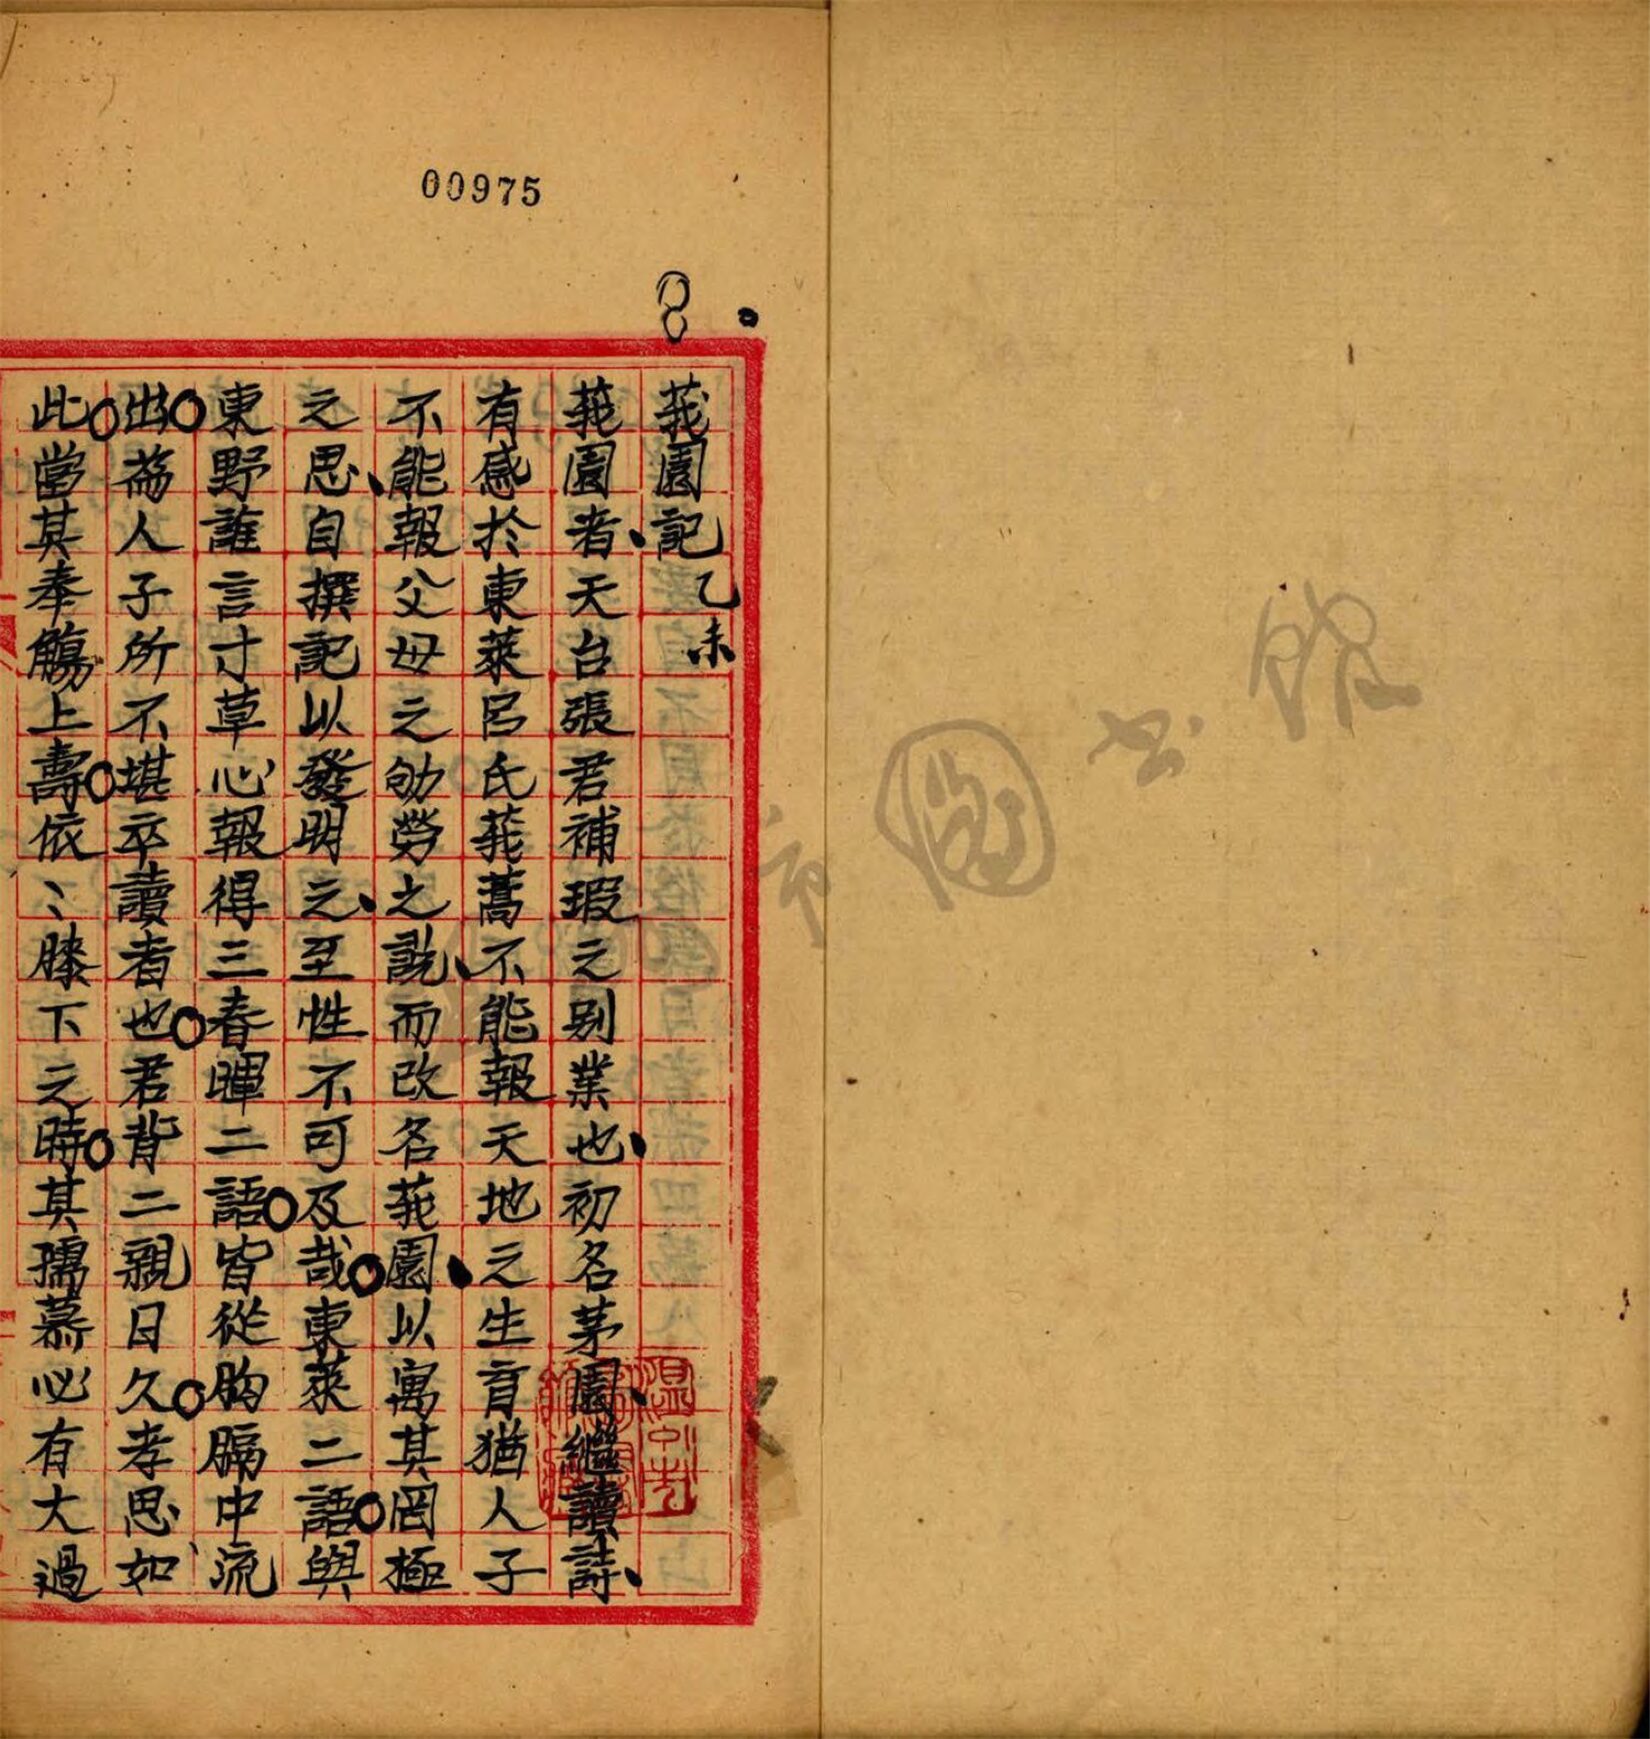 00975
莪園記 乙未
莪園者天台張君補瑕之别業也初名茅園繼讀詩
有感於東萊呂氏莪蒿不能報天地之生育猶人子
不能報父母之劬勞之説而改名莪園以寓其罔極
之思自撰記以發明之至性不可及哉東萊二語與
東野誰言寸草心報得三春暉二語皆從胸膈中流
出為人子所不堪卒讀者也君背二親日久孝思如
此當其奉觴上壽依〻膝下之時其孺慕必有大過
圖書館